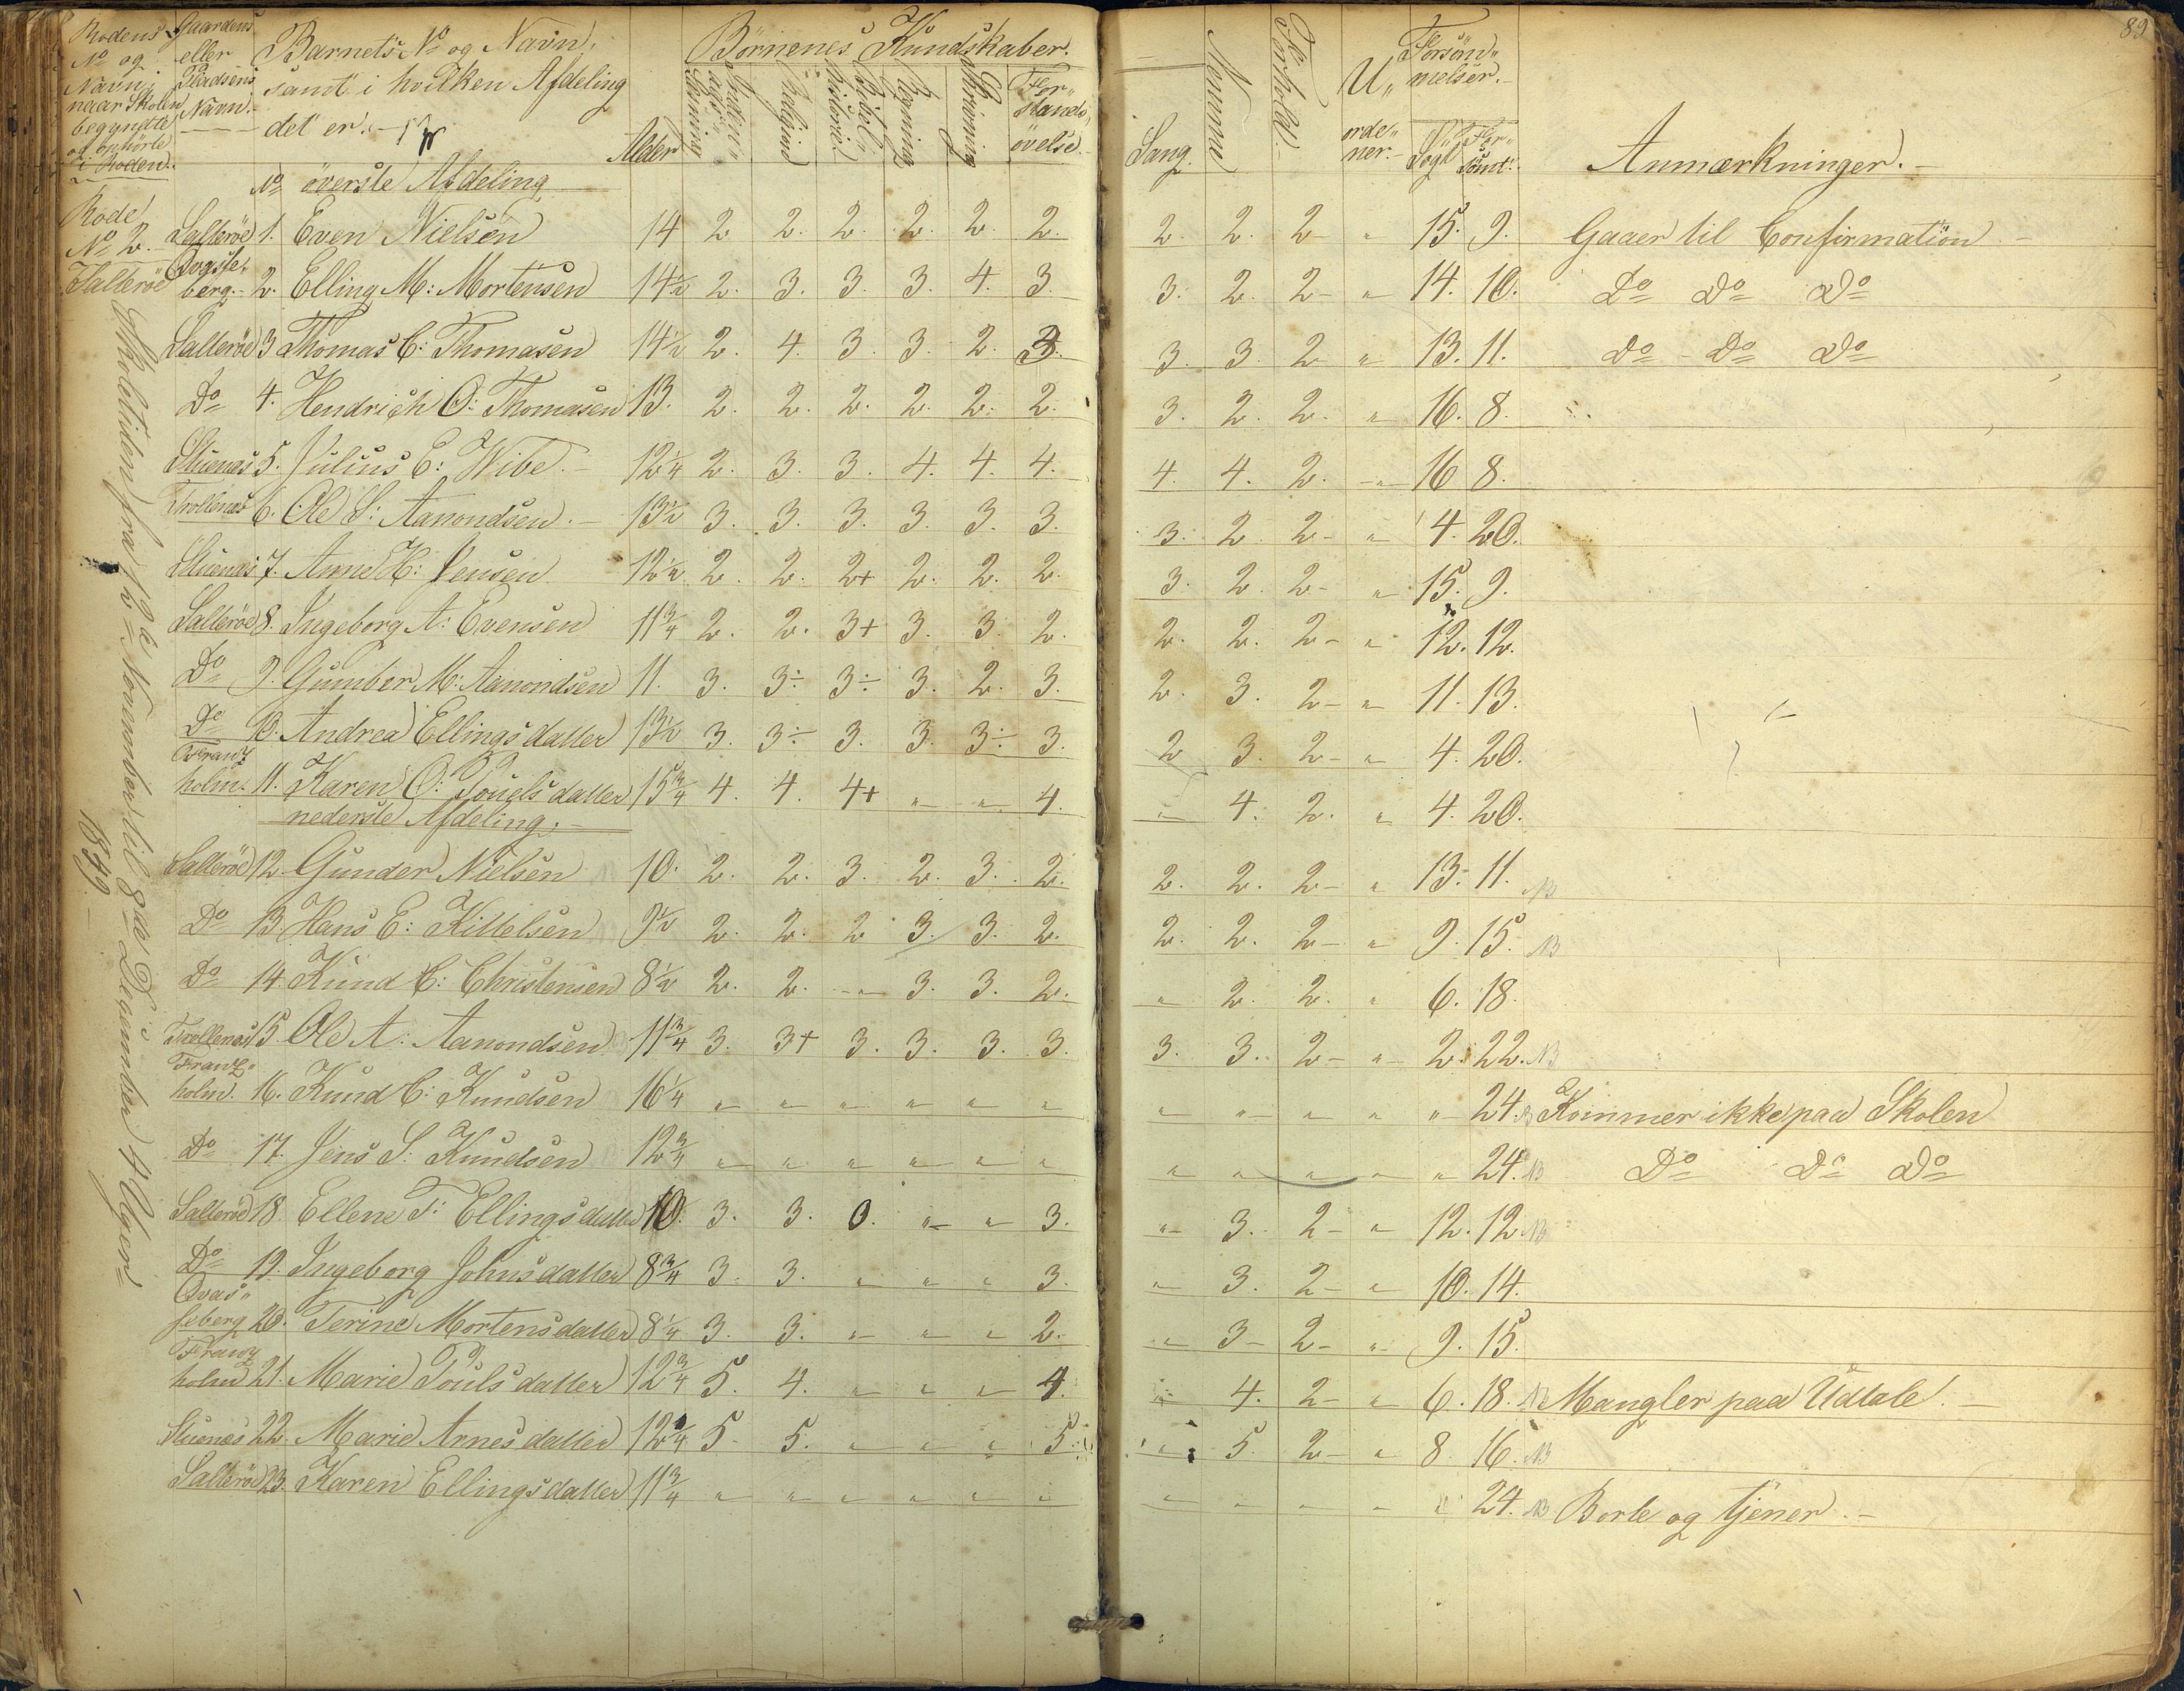 89
Rodens No og Navn, naar Skolen begyndte og ophörte i Roden.
Gaardens eller Pladsens Navn.
Barnets No og Navn, samt i hvilken Afdeling det er.
Alder
Börnenes Kundskaber.
Indenadslæsning
Religion
Bibelhistorie
Regning
Skrivning
Forstandsövelse
Sang.
Nemme
Forhold.
U„ordener.
Forsöm„melser.
Sögt
Forsömt.
Anmærkninger.
No överste Afdeling
Rode No 2. Salteröe
Skoletiden fra 12te November til 8de December 4 Uger
1849
Salteröe 1. Even Nielsen 14 2 2. 2. 2. 2. 2. 2. 2. 2 „ 15. 9. Gaaer til Confirmation
berg. 2. Elling M: Mortensen 14½ 2. 3. 3. 3. 4. 3. 3. 2. 2 „ 14. 10. Do Do Do
Salteröe 3 Thomas C: Thomasen 14½ 2. 4. 3. 3. 2. 3. 3. 3. 2 „ 13. 11. Do Do Do
Do 4. Hendrich O: Thomasen 13. 2. 2. 2. 2. 2. 2. 3. 2. 2. „ 16. 8.
Stuenæs 5. Julius E: Wibe. 12¼ 2. 3. 3. 4. 4. 4. 4. 4. 2. „ 16 8.
Trollenæs 6. Ole S: Aanondsen. 13½ 3. 3. 3. 3. 3. 3. 3. 2. 2 „ 4. 20.
Stuenæs 7. Anne H: Jensen 12½ 2. 2. 2+ 2. 2. 2. 3. 2. 2 „ 15. 9.
Salteröe 8. Ingeborg A: Evensen 11¾ 2. 2. 3+ 3. 3. 2. 2. 2. 2 „ 12. 12.
Do 9. Gunber M: Aanondsen 11. 3. 3÷ 3÷ 3. 2. 3. 2. 3. 2 „ 11. 13.
Do 10. Andrea Ellingsdatter 13½ 3. 3÷ 3. 3. 3÷ 3. 2 3. 2 „ 4. 20.
Franzholm. 11. Karen O: Pouelsdatter 15¾ 4. 4. 4+ „ „ 4. „ 4. 2. „ 4. 20.
nederste Afdeling.
Salteröe 12. Gunder Nielsen 10. 2. 2. 3. 2. 3. 2. 2. 2. 2 „ 13. 11. NB
Do 13. Hans E: Kittelsen 9½ 2. 2. 2 3. 3. 2. 2. 2. 2 „ 9. 15. NB
Do 14. Knud C: Christensen 8½ 2. 2. „ 3. 3. 2. „ 2. 2. „ 6. 18.
Trollenæs 15. Ole A: Aanondsen 11¾ 3. 3+ 3. 3. 3. 3. 3. 3. 2 „ 2. 22. NB
Franzholm. 16. Knud C: Knudsen 16¼ „ „ „ „ „ „ „ „ „ „ „ 24. NB Kommer ikke paa Skolen
Do 17. Jens S: Knudsen 12¾ „ „ „ „ „ „ „ „ „ „ „ 24. NB Do Do Do
Salteröe 18. Ellene T: Ellingsdatter 10. 3. 3. 0. „ „ 3. „ 3. 2 „ 12. 12. NB
Do 19. Ingeborg Johnsdatter 8¾ 3. 3. „ „ „ 3. „ 3. 2 „ 10. 14.
20. Terine Mortensdatter 8¼ 3. 3. „ „ „ 2. „ 3 2 „ 9. 15.
Franzholm 21. Marie Poulsdatter 12¾ 5. 4. „ „ „ 4. „ 4. 2 „ 6. 18. NB Mangler paa Udtale.
Stuenæs 22. Marie Arnesdatter 12¼ 5 5. „ „ „ 5. „ 5. 2 „ 8 16. NB
Salteröe 23. Karen Ellingsdatter 11¾ „ „ „ „ „ „ „ „ „ „ „ 24. NB Borte og tjener.